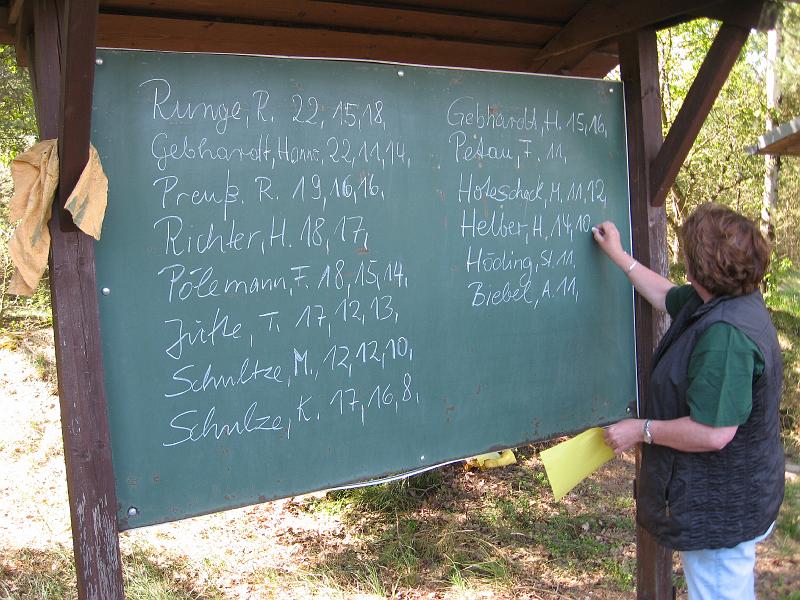 Runge, R. 22, 15, 18,
Gebhardt, Hann., 22, 11, 14,
Preuß. R. 19, 16, 16,
Richter, H. 18, 17,
Pölemann, F. 18, 15, 14,
T. 17, 12, 13,
Schultze, M., 12, 12, 10,
Schulze, K. 17, 16, 8,
Gebhardt, H. 15, 16,
Petau, F. 11,
Holescheck, M. 11, 12,
Helber, H. 14, 10
Höding, St. 11,
Biebel, A. 11,